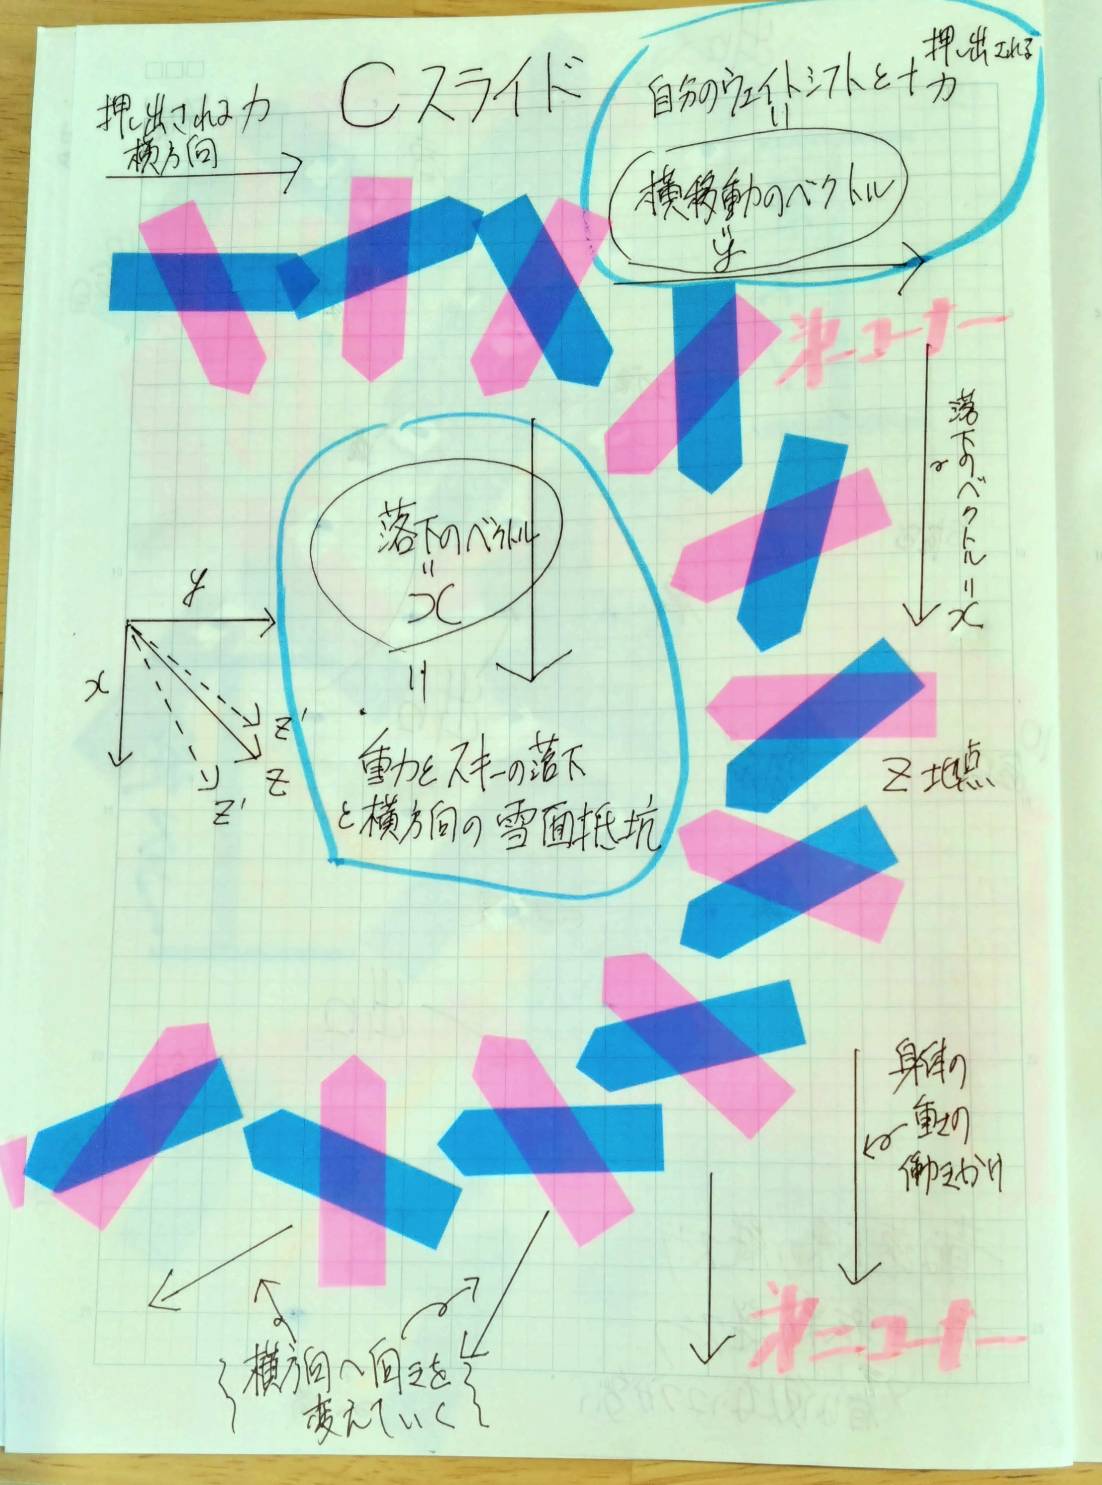 Cスライド
押し出される力
横方向
押し出される
自分のウェイトシフトと+力
||
横移動のベクトル
||
y
第一コーナー
落下のベクトル=x
落下のベクトル
||
x
||
重力とスキーの落下
と横方向の雪面抵抗
y
x
z'
z
z'
Z地点
身体の
重さの
働きかけ
第二コーナー
横方向へ向きを
変えていく